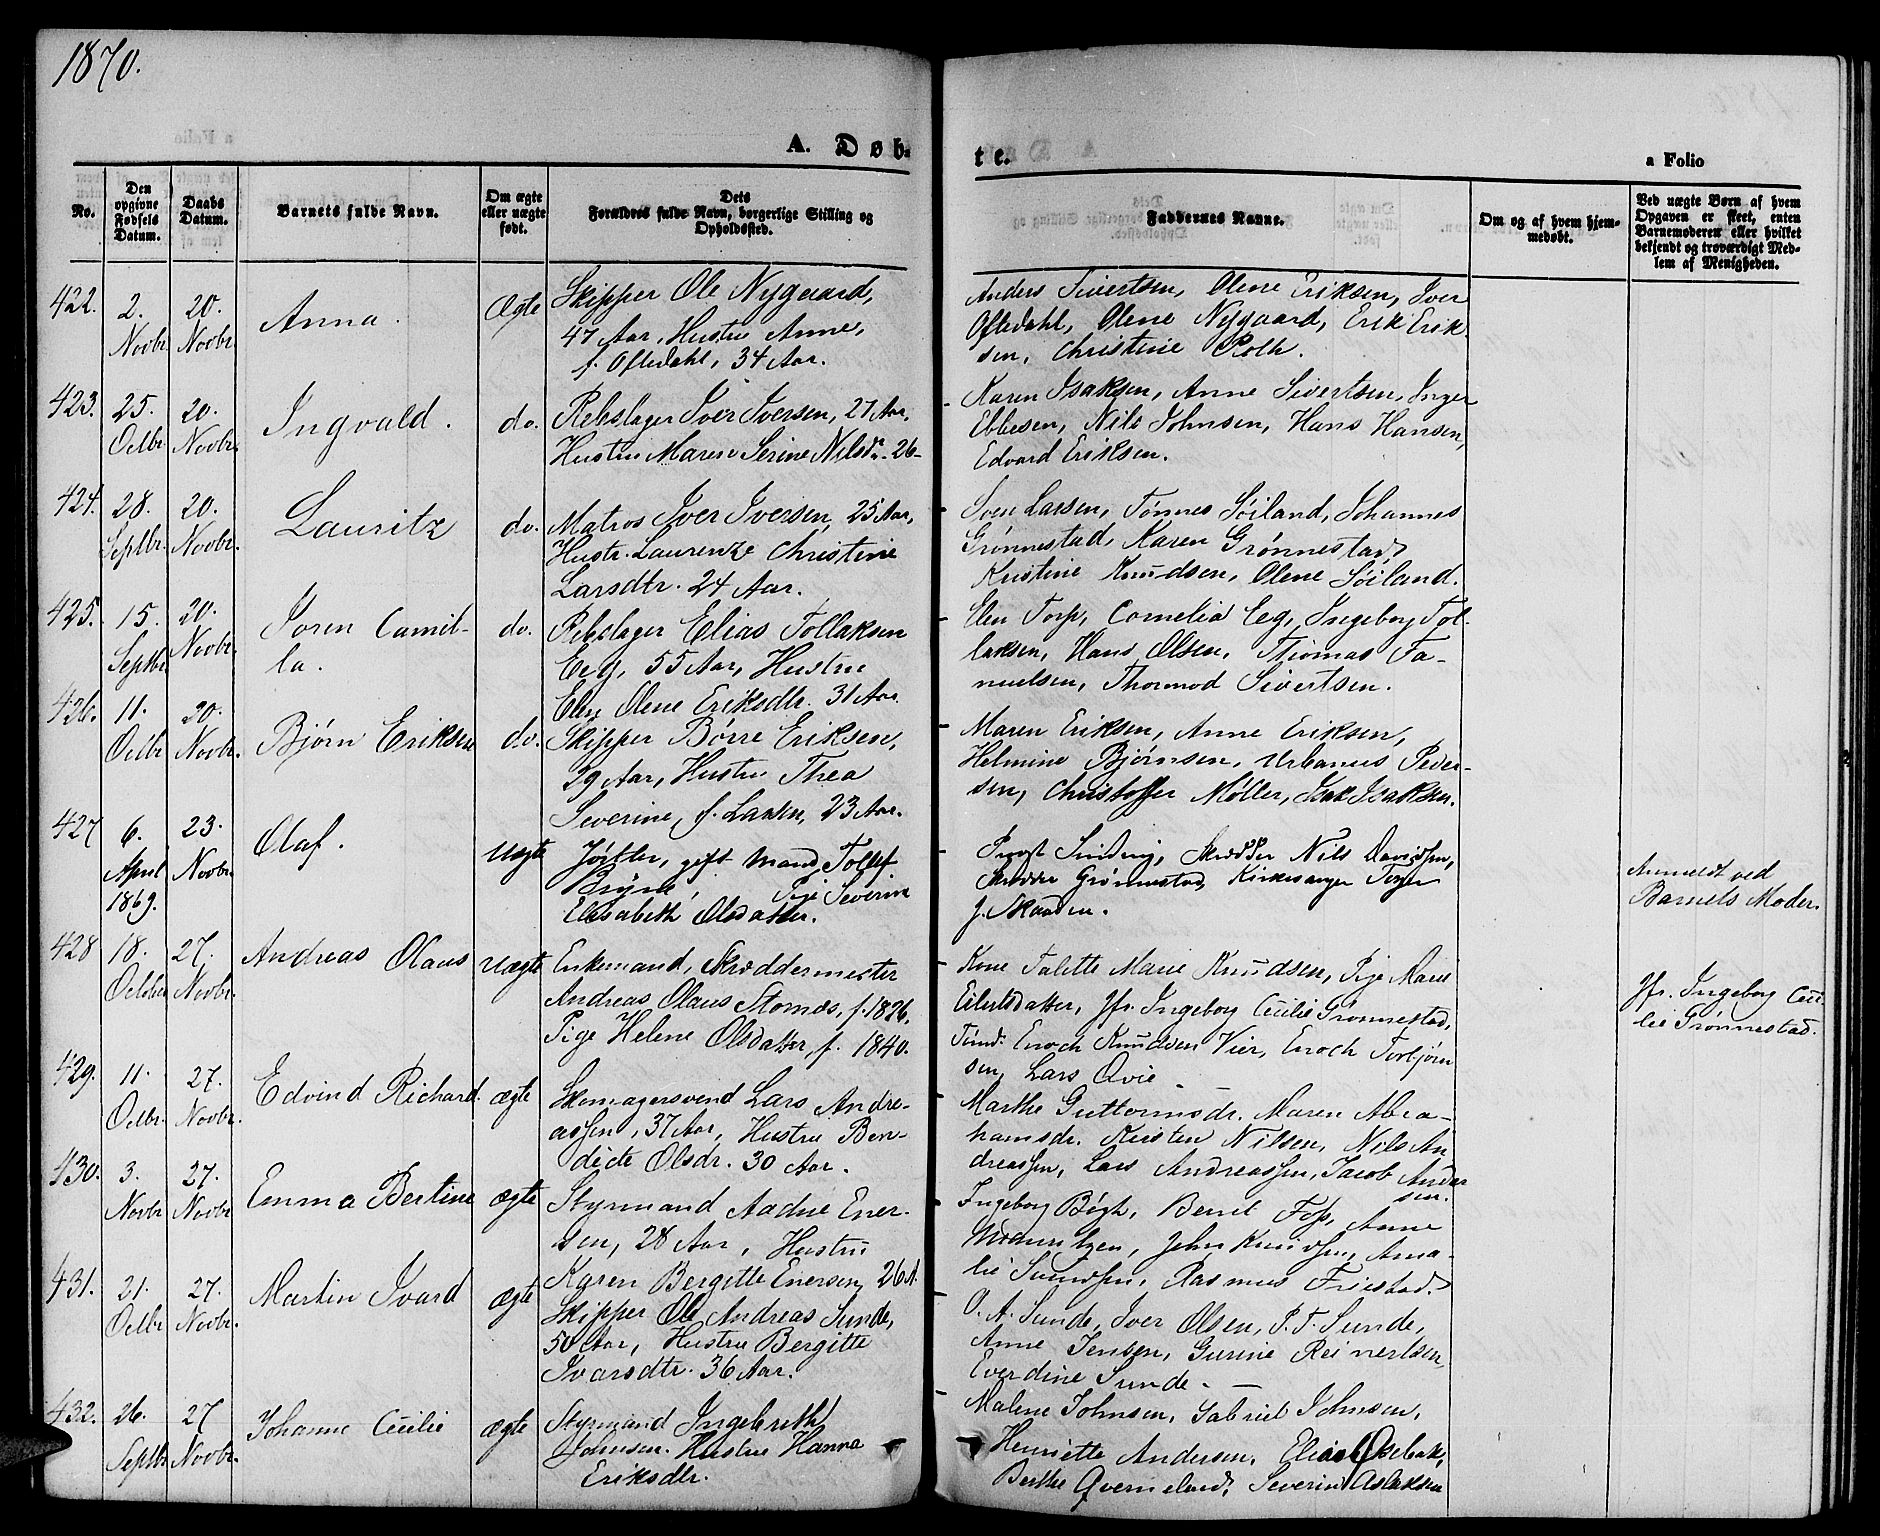 1870.
A. Døb-
te.
a Folio
No.
Den opgivne Fødsels Datum.
Daabs Datum.
Barnets fulde Navn.
Om ægte eller uægte født.
Dets Forældres fulde Navn, borgerlige Stilling og Opholdssted.
Faddernes Navne.
Om og af hvem hjemmedøbt.
Ved uægte Børn af hvem Opgaven er skeet, enten Barnemoderen eller hvilket bekjendt og troværdigt Medlem af Menigheden.
422. 2. Novbr. 20. Novbr. Anna. Ægte
Skipper Ole Nygaard,
47 Aar, Hustru Anne,
f. Oftedahl, 34 Aar.
Anders Sivertsen, Olene Eriksen, Iver
Oftedahl, Olene Nygaard, Erik Erik-
sen, Christine Roth.
423. 25. Octbr. 20. Novbr. Ingvald. do.
Rebslager Iver Iversen, 27 Aar,
Hustru Maren Serine Nilsdr. 26-
Karen Isaksen, Anne Sivertsen, Inger
Ebbesen, Nils Johnsen, Hans Hansen,
Edvard Eriksen.
424. 28. Septbr. 20. Novbr. Lauritz do.
Matros Iver Iversen, 25 Aar,
Hustr. Laurenze Christine
Larsdtr. 24 Aar.
Sven Larsen, Tønnes Søiland, Johannes
Grønnestad, Karen Grønnestad,
Kristine Knudsen, Olene Søiland.
425. 15. Septbr. 20. Novbr. Joren Camil-
la. do.
Rebslager Elias Tollaksen
Eeg, 55 Aar, Hustru
Elen Olene Eriksdtr. 31 Aar.
Elen Torp, Cornelia Eeg, Ingeborg Tol-
laksen, Hans Olsen, Thomas Ta-
nuelsen, Thormod Sivertsen.
426. 11. Octbr. 20. Novbr. Bjørn Eriksen do.
Skipper Børre Eriksen,
29 Aar, Hustru Thea
Severine, f. Larsen, 23 Aar.
Maren Eriksen, Anne Eriksen,
Helmine Bjørnsen, Urbanus Peder-
sen, Christoffer Møller, Isak Isaksen.
427 6. April 1869. 23. Novbr. Olaf. Uægte
gift Mand Tollef
Bryne, Pige Severine
Elisabeth Olsdatter.
Provst Sinding, Skrædder Nils Davidsen,
Skrædder Grønnestad, Kirkesanger Torger
J. Skaaden.
Anmeldt ved
Barnets Moder.
428 18. October 27. Novbr. Andreas Olaus Uægte
Enkemand, Skræddermester
Andreas Olaus Stornæs, f. 1826,
Pige Helene Olsdatter, f. 1840.
Kone Talette Marie Knudsen, Pige Marie
Eilertsdatter, Jfr. Ingeborg Cecilie Grønnestad,
Tømd. Enoch Knudsen Vier, Enoch Torbjørn
sen, Lars Qvie -
Jfr. Ingeborg Ceci-
lie Grønnestad.
429. 11. Octbr. 27. Novbr. Edvind Richard. ægte
Skomagersvend Lars Andre-
assen, 37 Aar, Hustru Ben-
dicte Olsdr. 30 Aar.
Marthe Guttormsdr. Maren Abra-
hamsdr. Kristen Nilsen, Nils An
dreassen, Lars Andreassen, Jacob Ander
sen.
430. 3. Novbr. 27. Novbr. Emma Bertine ægte
Styrmand Aadne Ener-
sen, 28 Aar, Hustru
Karen Bergitte Enersen, 26 A.
Ingeborg Bøgh, Berret Foss, Anne
Mauritzen, John Knudsen, Ama-
lie Svendsen, Rasmus Friestad.
431. 21. Octbr. 27. Novbr. Martin Ivard ægte
Skipper Ole Andreas Sunde,
50 Aar, Hustru Bergitte
Ivarsdtr. 36 Aar.
O. A. Sunde, Iver Olsen, P. T. Sunde,
Anne Jensen, Gurine Reinertsen,
Everdine Sunde. -
432. 26. Septbr. 27 Novbr. Johanne Cecilie ægte
Styrmand Ingebreth
Johnsen. Hustru Hanna
Eriksdtr.
Malene Johnsen, Gabriel Johnsen,
Henriette Andersen, Elias Osebak,
Berthe Qverneland, Severin Aslaksen